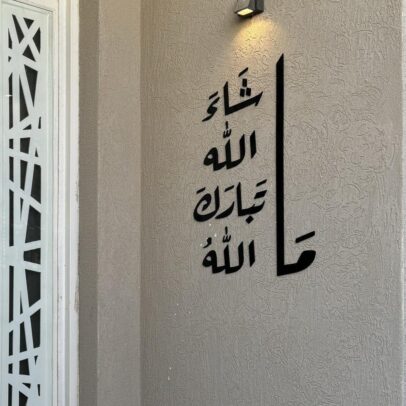 مَا
شَاءَ
اللّٰه
تَبَارَكَ
اللّٰهُ